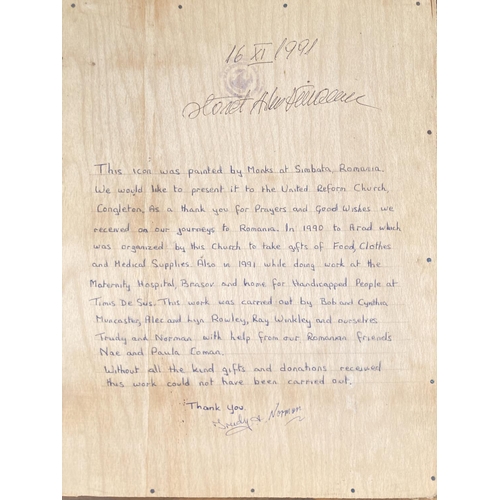 16 XI 1991
This Icon was painted by Monks at Simbata, Romania.
We would like to present it to the United Reform Church,
Congleton, As a thank you for Prayers and Good Wishes we
received on our journeys to Romania. In 1990 to Arad which
was organized by this Church to take gifts of Food, Clothes
and Medical Supplies. Also in 1991 while doing work at the
Maternity Hospital, Brasov and home for Handicapped People at
Timis De Sus. This work was carried out by Bob and Cynthia
Muncaster, Alec and Lyn Rowley, Ray Winkley and ourselves
Trudy and Norman with help from our Romanian friends
Nae and Paula Coman.
Without all the kind gifts and donations received
this work could not have been carried out.
Thank You
Trudy & Norman